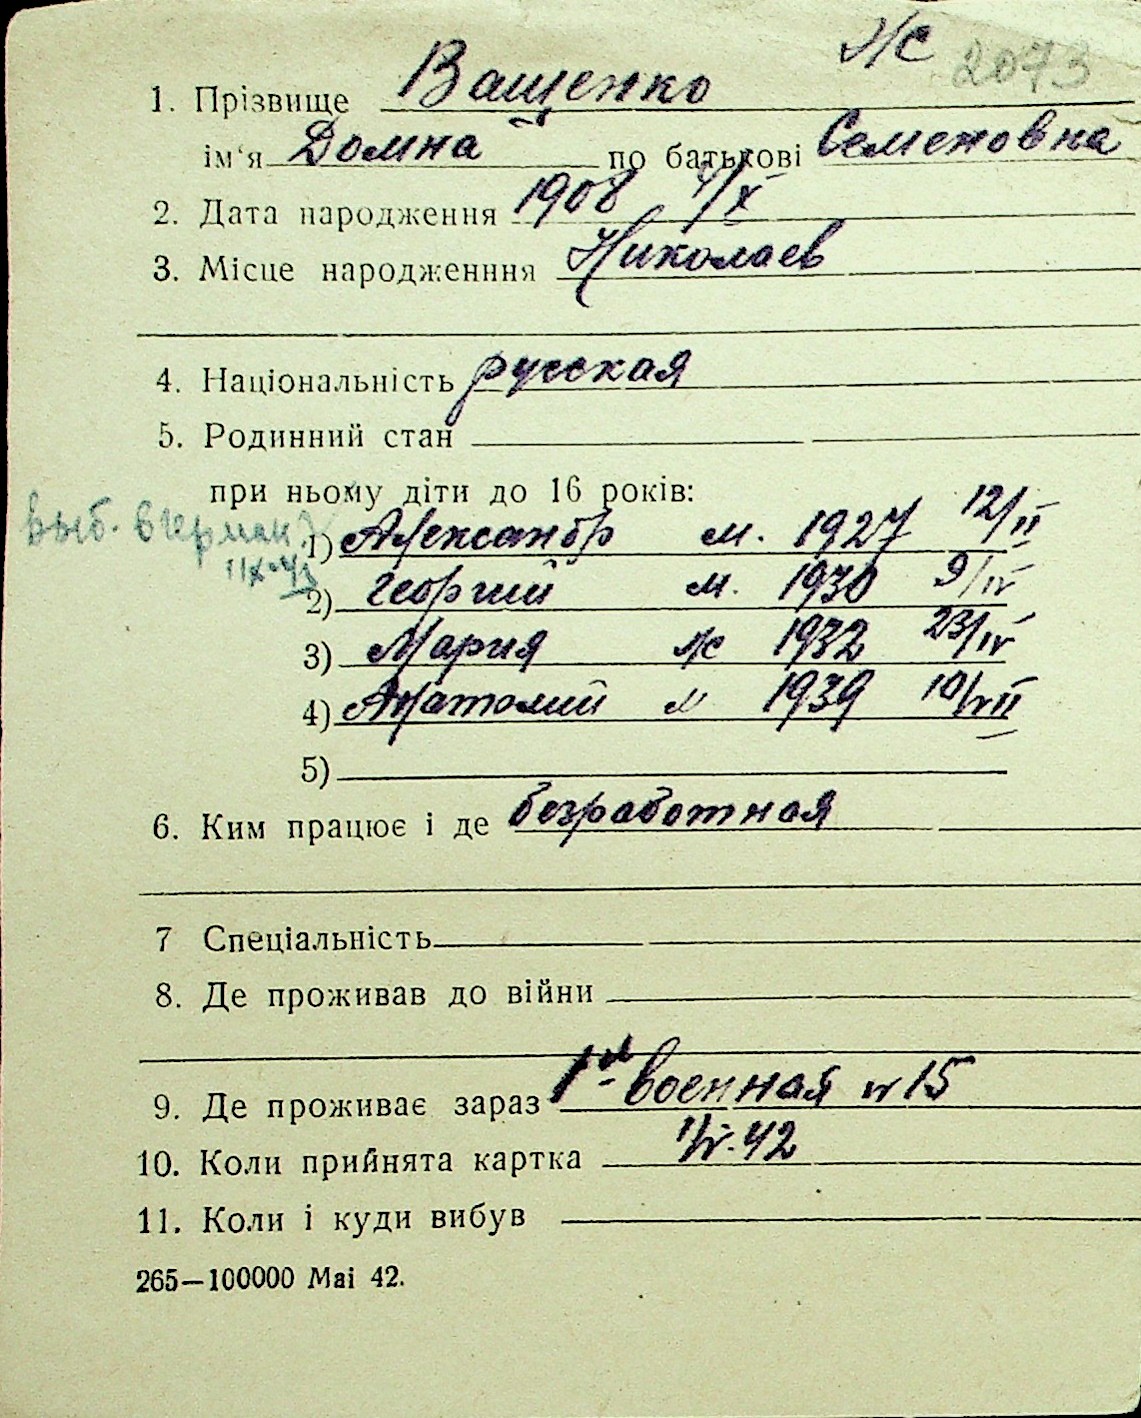 ж 2073
1. Прізвище Ващенко
ім'я Домна по батькові Семеновна
2. Дата народження 1908 1/X
3. Місце народженння Николаев
4. Національність русская
5. Родинний стан
при ньому діти до 16 років:
выб. в герман.
1) Александр м. 1927 12/II
2) Георгий м. 1930 9/IV
3) Мария ж 1932 23/IV
4) Анатолий м 1939 10/VII
5)
6. Ким працює і де безработная
7 Спеціальність
8. Де проживав до війни
9. Де проживає зараз 1ая военная N 15
10. Коли прийнята картка
11. Коли і куди вибув
265—100000 Mai 42.